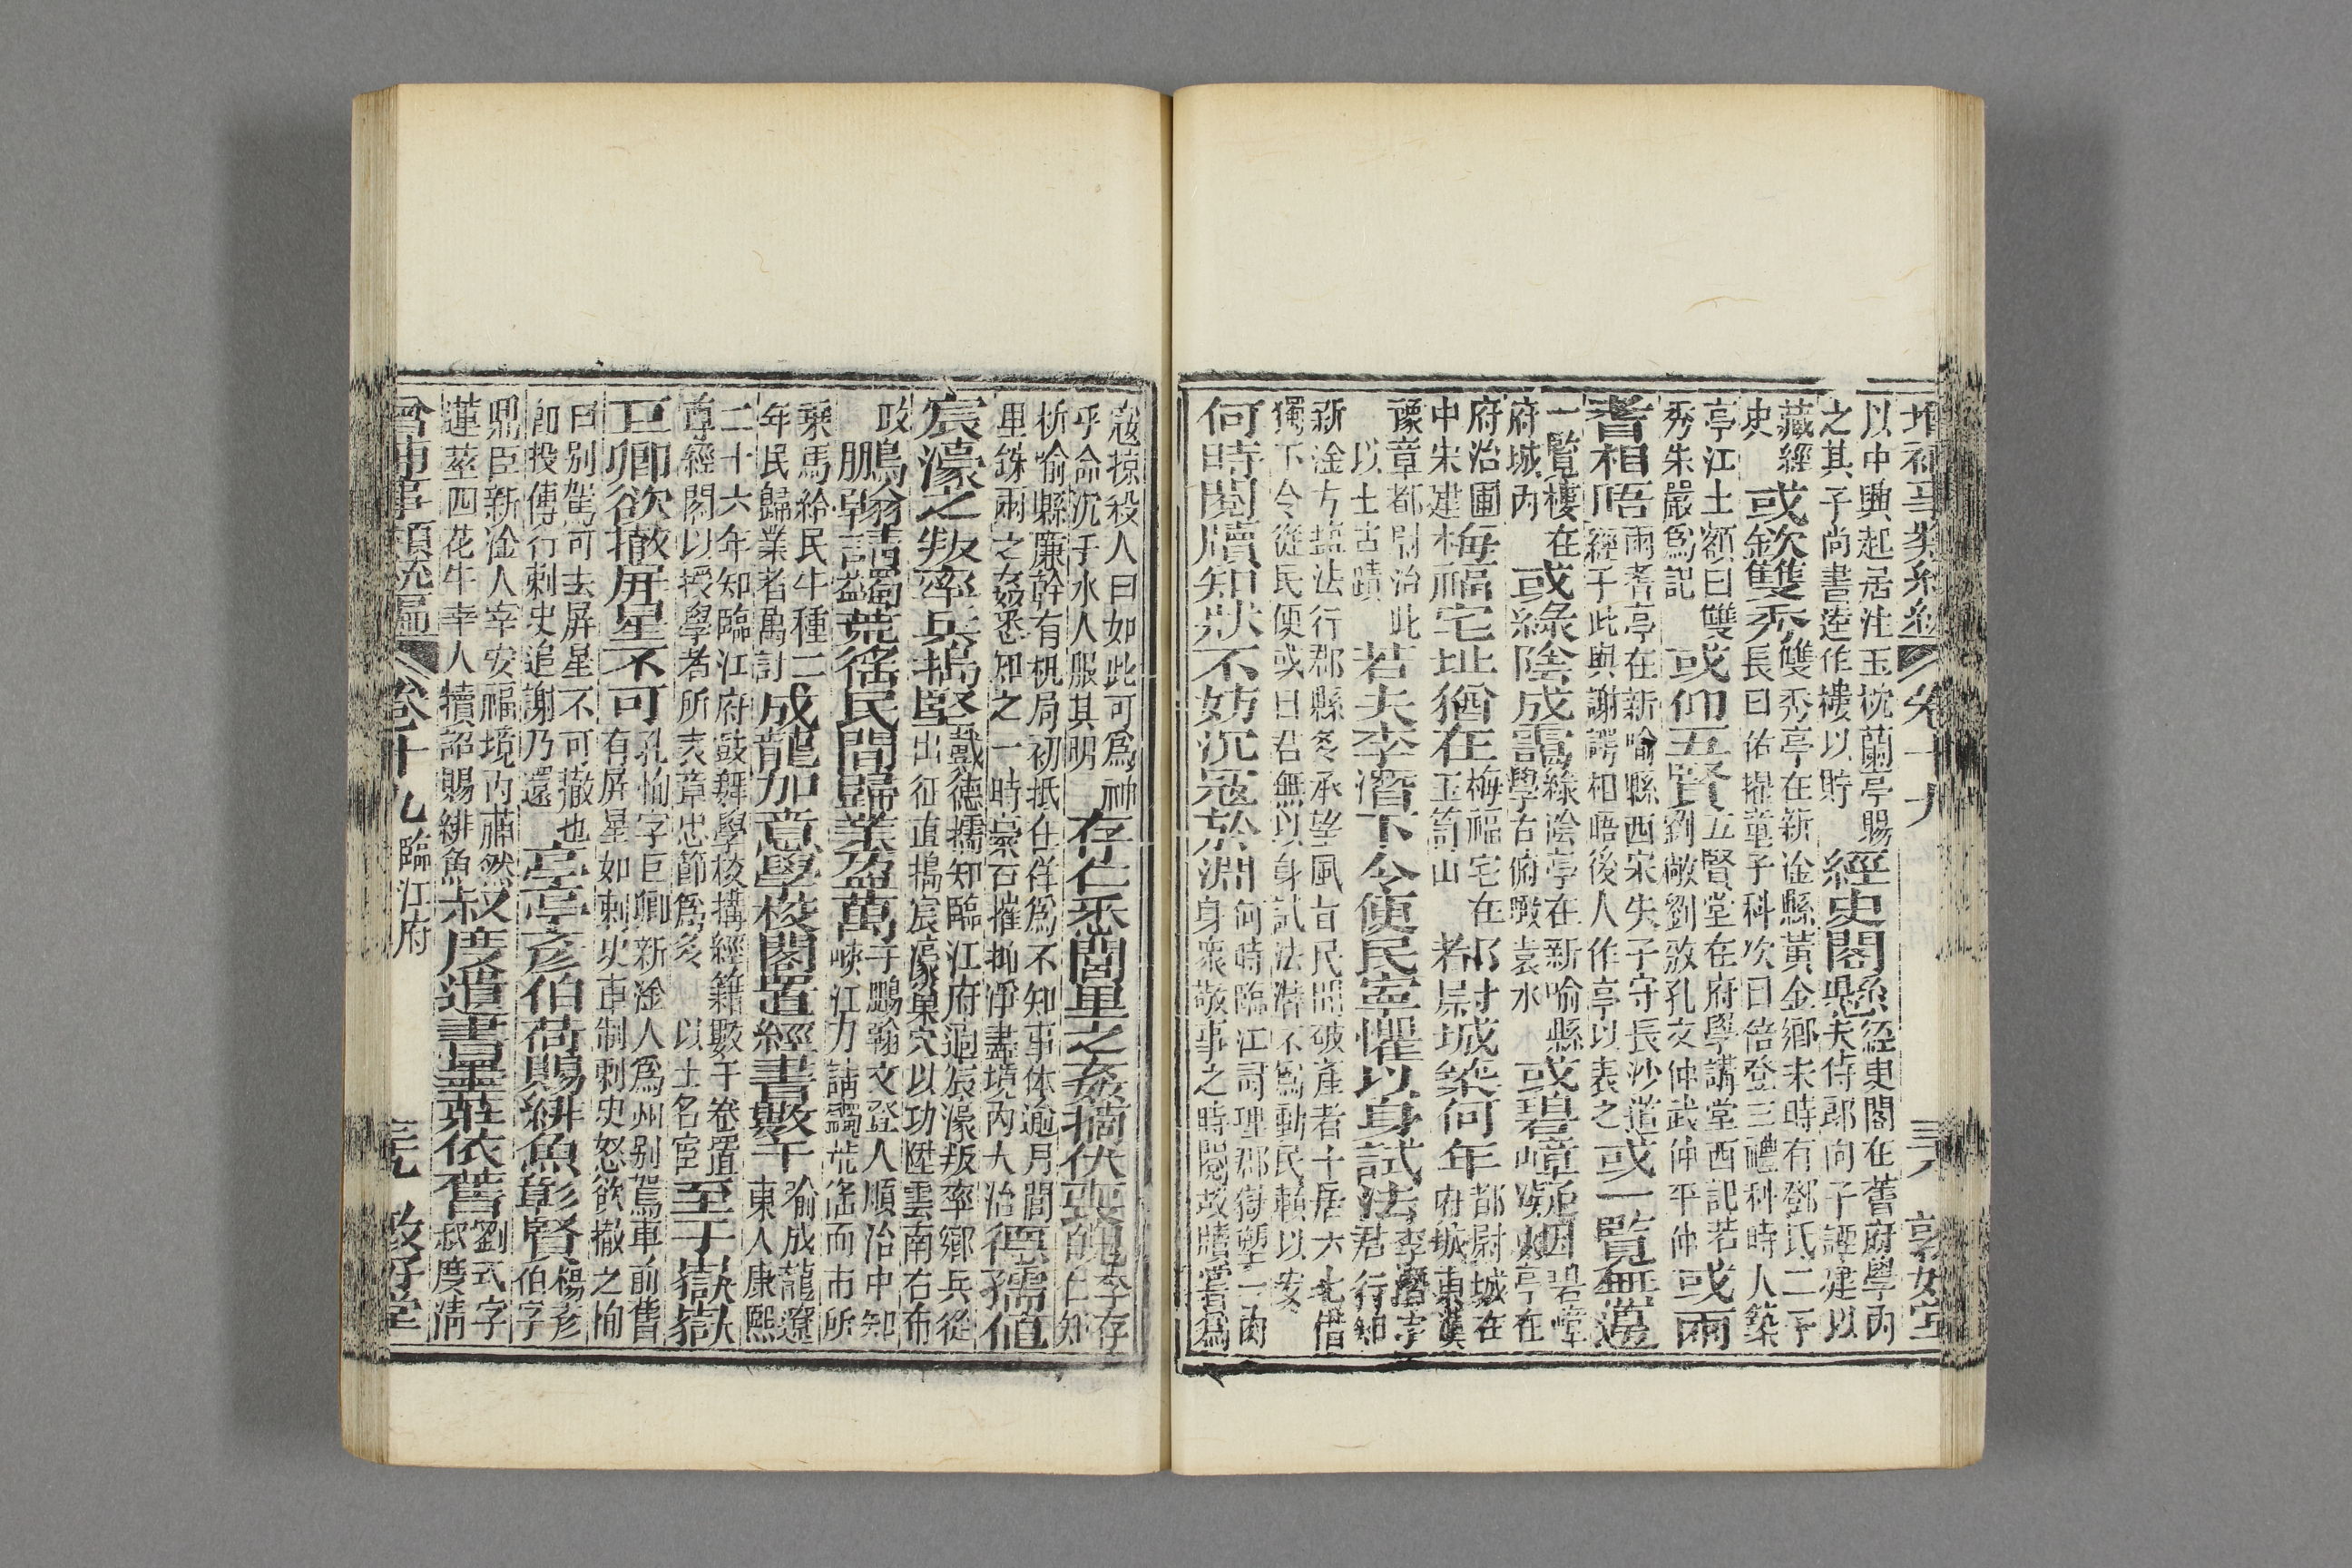 增補事類統編 卷十九 三六 敦好堂
以中興起居注玉枕蘭亭賜
之其子尚書逵作樓以貯
經史閣懸
經史閣在舊府學內
夫侍郎向子諲建以
藏經
史
或欽雙秀
雙秀亭在新淦縣黃金鄉宋時有鄧氏二子
長曰佑擢童子科次曰倍登三禮科時人築
亭江土額曰雙
秀朱嚴爲記
或仰五賢
五賢堂在府學講堂西記若
劉敞劉攽孔文仲武仲平仲
或兩
耆相晤
兩耆亭在新喻縣西宋朱子守長沙道
經于此與謝諤相晤後人作亭以表之
或一覽無邊
一覽樓在
府城內
或綠陰成靄
綠陰亭在新喻縣
學右俯瞰袁水
或碧嶂凝烟
碧嶂
亭在
府治圃
中朱建
梅福宅址猶在
梅福宅在
玉笥山
都尉城築何年
都尉城在
府城東漢
豫章都尉治此
以土古蹟
若夫李潛下令使民寧懼以身試法
李潛字
君行知
新淦方塩法行郡縣多承望風旨民間破產者十居六七偕
獨下令從民便或曰君無以身試法潛不爲動民賴以安
何時閱牘知狀不妨沉冤於淵
何時臨江司理郡獄塑一肉
身衆敬事之時閱故牘嘗爲
寇掠殺人曰如此可爲神
乎命沉于水人服其明
存仁悉閭里之姦摘伏喪魄
李存
仁知
新喻縣廉幹有机局初抵任佯爲不知事体逾月間
里銖兩之姦悉知之一時豪右摧抑淨盡境內大治
德孺值
宸濠之叛率兵搗堅
戴德孺知臨江府適宸濠叛率鄉兵從
出征直搗宸濠巢穴以功陞雲南右布
政
鵬翰請蠲荒徭民間歸業盈萬
于鵬翰文登人順治中知
峽江力請蠲荒徭而市所
乘馬給民牛種二
年民歸業者萬計
成龍加意學校閣置經書數千
喻成龍遼
東人康熙
二十六年知臨江府鼓舞學校搆經籍數千卷置
尊經閣以授學者所表章忠節爲多
以土名宦
至于嶽嶽
巨卿欲撤屏星不可
孔恂字巨卿新淦人爲州别駕車前舊
有屏星如刺史車制刺史怒欲撤之恂
曰别駕可去屏星不可撤也
卽投傳行刺史追謝乃還
亭亭彥伯荷賜緋魚彰賢
楊彥
伯字
鼎臣新淦人宰安福境內肅然
蓮莖四花牛幸人犢詔賜緋魚
叔度遺書墨莊依舊
劉式字
叔度淸
增補事類統編 卷十九 臨江府 三七 敦好堂